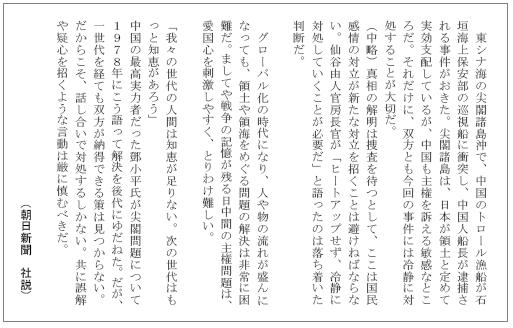 東シナ海の尖閣諸島沖で、中国のトロール漁船が石
垣海上保安部の巡視船に衝突し、中国人船長が逮捕さ
れる事件がおきた。尖閣諸島は、日本が領土と定めて
実効支配しているが、中国も主権を訴える敏感なとこ
ろだ。それだけに、双方とも今回の事件には冷静に対
処することが大切だ。
（中略）真相の解明は捜査を待つとして、ここは国民
感情の対立が新たな対立を招くことは避けねばならな
い。仙谷由人官房長官が「ヒートアップせず、冷静に
対処していくことが必要だ」と語ったのは落ち着いた
判断だ。
　グローバル化の時代になり、人や物の流れが盛んに
なっても、領土や領海をめぐる問題の解決は非常に困
難だ。ましてや戦争の記憶が残る日中間の主権問題は、
愛国心を刺激しやすく、とりわけ難しい。
「我々の世代の人間は知恵が足りない。次の世代はも
っと知恵があろう」
中国の最高実力者だった鄧小平氏が尖閣問題について
１９７８年にこう語って解決を後代にゆだねた。だが、
一世代を経ても双方が納得できる策は見つからない。
だからこそ、話し合いで対処するしかない。共に誤解
や疑心を招くような言動は厳に慎むべきだ。
（朝日新聞　社説）